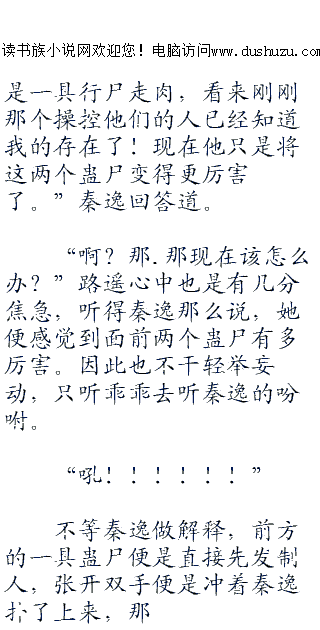 读书族小说网欢迎您！电脑访问www.dushuzu.com
是一具行尸走肉，看来刚刚
那个操控他们的人已经知道
我的存在了！现在他只是将
这两个蛊尸变得更厉害
了。”秦逸回答道。
“啊？那.那现在该怎么
办？”路遥心中也是有几分
焦急，听得秦逸那么说，她
便感觉到面前两个蛊尸有多
厉害。因此也不干轻举妄
动，只听乖乖去听秦逸的吩
咐。
“吼！！！！！！”
不等秦逸做解释，前方
的一具蛊尸便是直接先发制
人，张开双手便是冲着秦逸
扑了上来，那